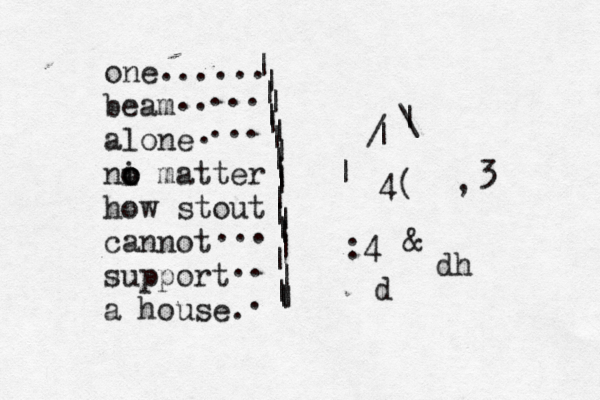 one......
beam.....
alone....
no matter
how stout
cannot...
support..
a house..
/| |\
| 4( ,3
:4 & dh
d